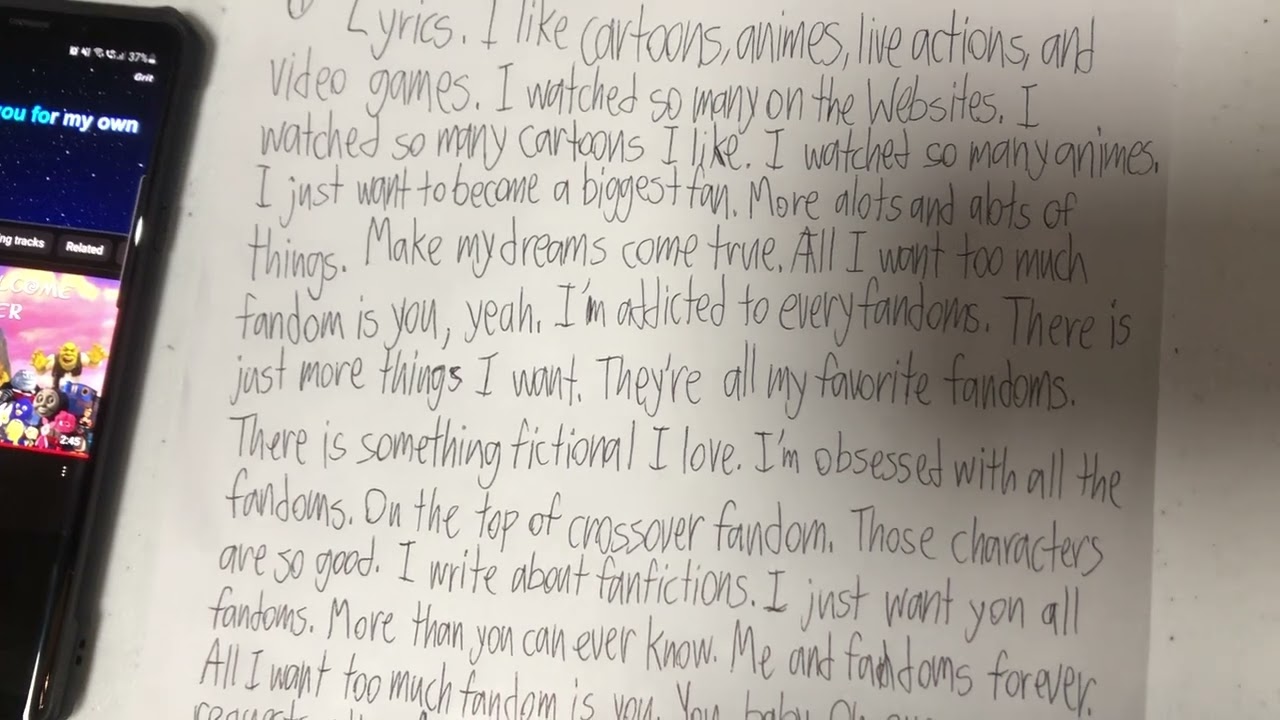 37%
Grit
ou for my own
ng tracks Related
LCOME
ER
2:45
① Lyrics. I like cartoons, animes, live actions, and
video games. I watched so many on the Websites. I
watched so many cartoons I like. I watched so many animes.
I just want to become a biggest fan. More alots and alots of
things. Make my dreams come true. All I want too much
fandom is you, yeah. I'm addicted to every fandoms. There is
just more things I want. They're all my favorite fandoms.
There is something fictional I love. I'm obsessed with all the
fandoms. On the top of crossover fandom. Those characters
are so good. I write about fanfictions. I just want you all
fandoms. More than you can ever know. Me and fandoms forever.
All I want too much fandom is you. You baby. Oh